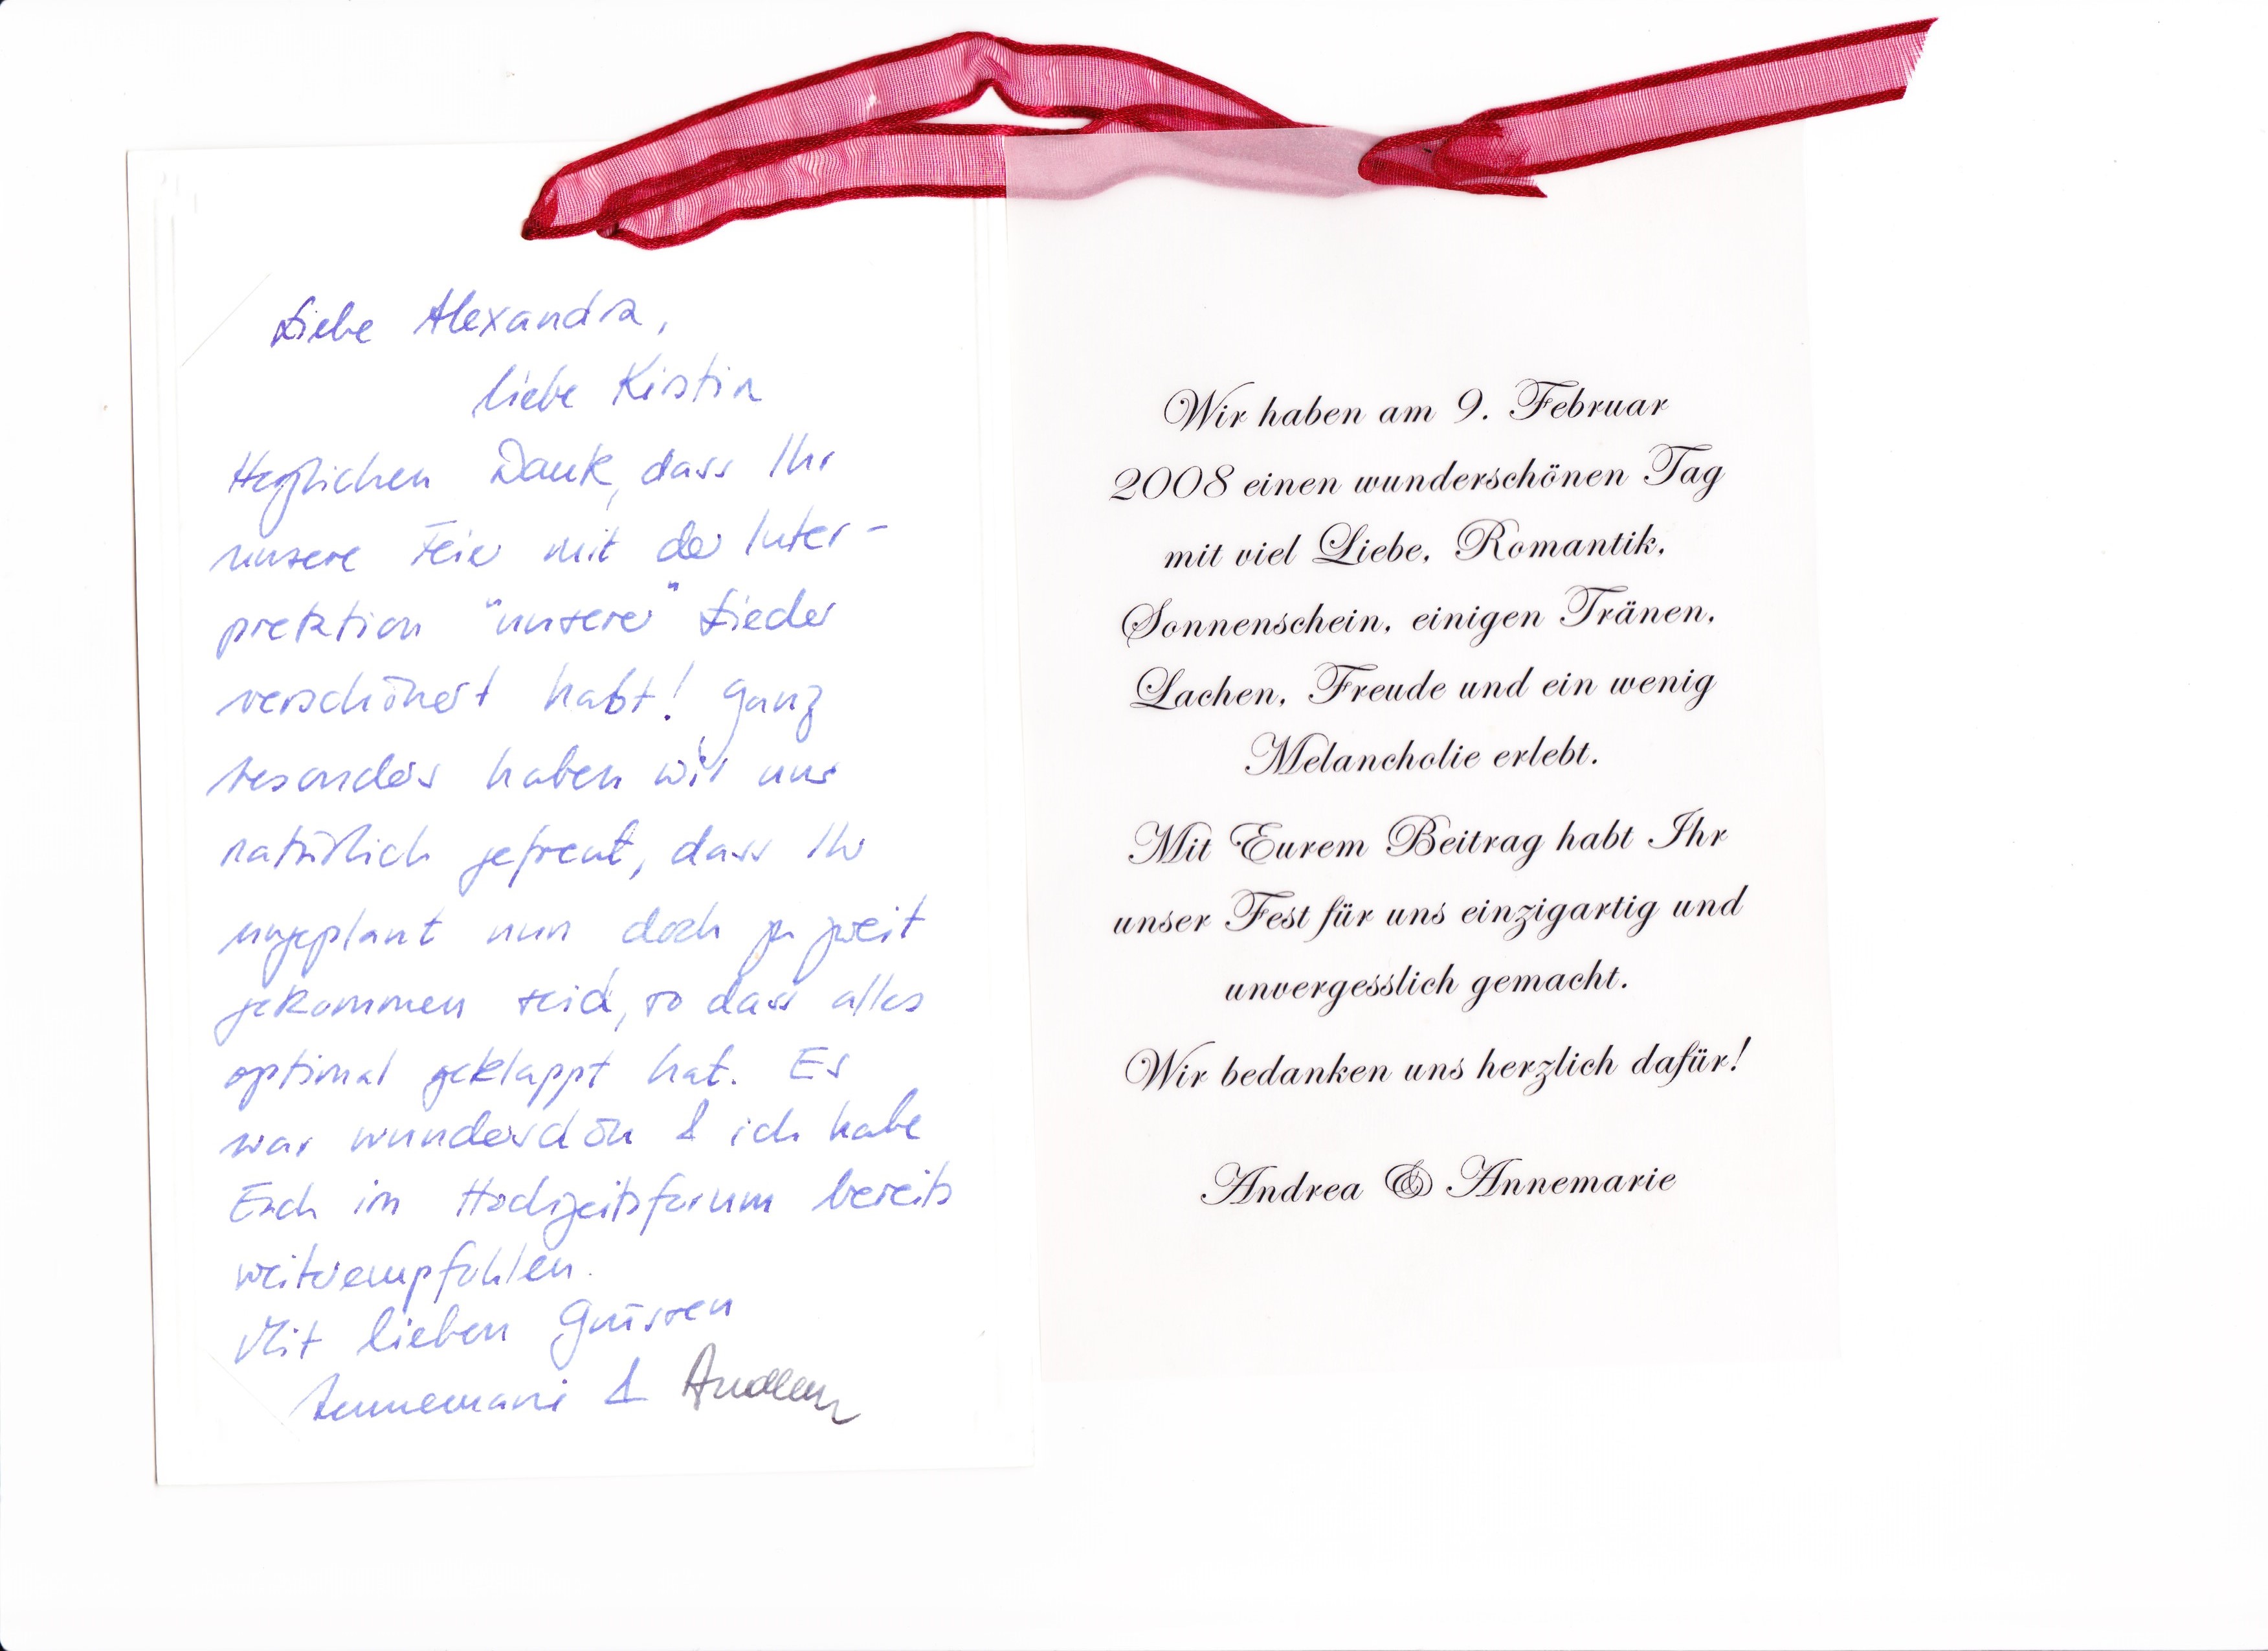 Liebe Alexandra,
liebe Kirstin
Herzlichen Dank, dass Ihr
unsere Feier mit der Inter-
pretation "unserer" Lieder
verschönert habt! Ganz
besonders haben wir uns
natürlich gefreut, dass Ihr
ungeplant nun doch zu zweit
gekommen seid, so dass alles
optimal geklappt hat. Es
war wunderschön & ich habe
Euch im Hochzeitsforum bereits
weiterempfohlen.
Mit lieben Grüssen
Annemarie & Andrea
Wir haben am 9. Februar
2008 einen wunderschönen Tag
mit viel Liebe, Romantik,
Sonnenschein, einigen Tränen,
Lachen, Freude und ein wenig
Melancholie erlebt.
Mit Eurem Beitrag habt Ihr
unser Fest für uns einzigartig und
unvergesslich gemacht.
Wir bedanken uns herzlich dafür!
Andrea & Annemarie